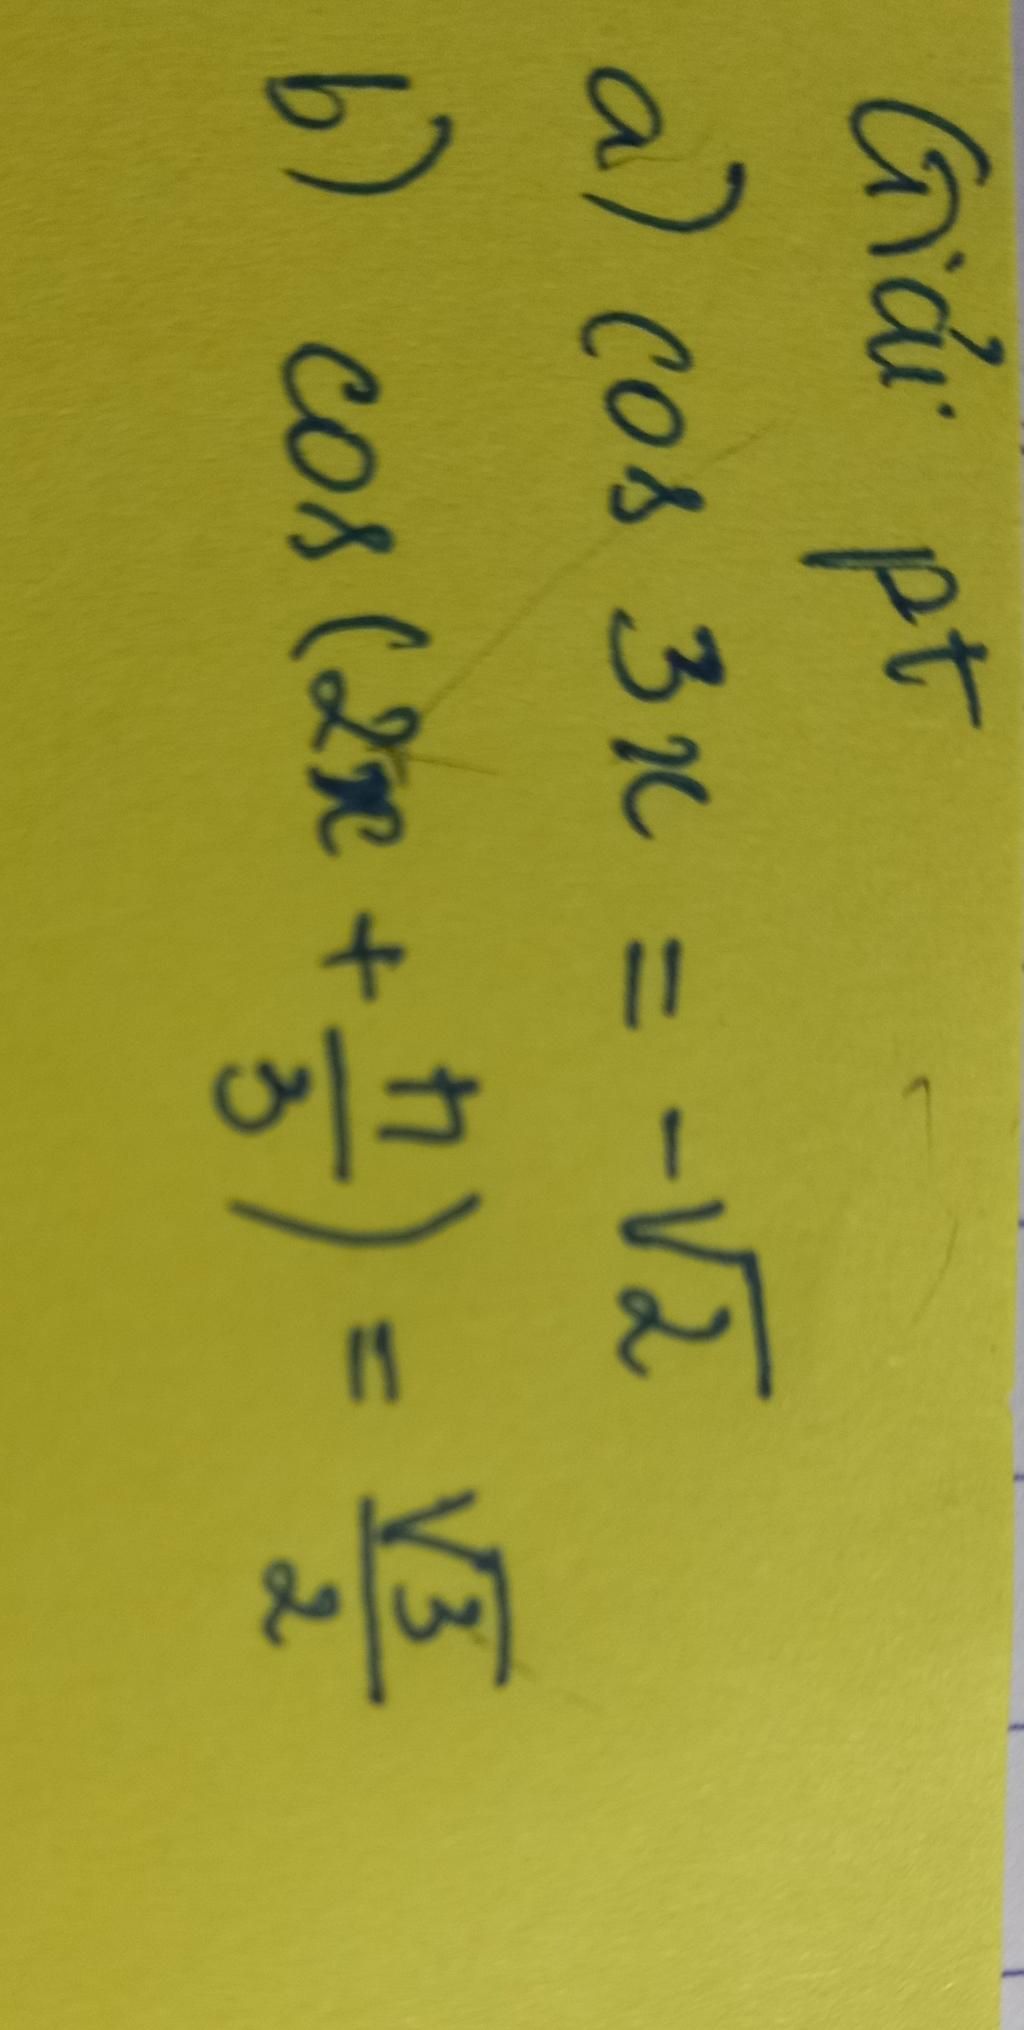 Giải pt
a) cos 3x = -√2
b) cos (2x + π/3) = √3/2